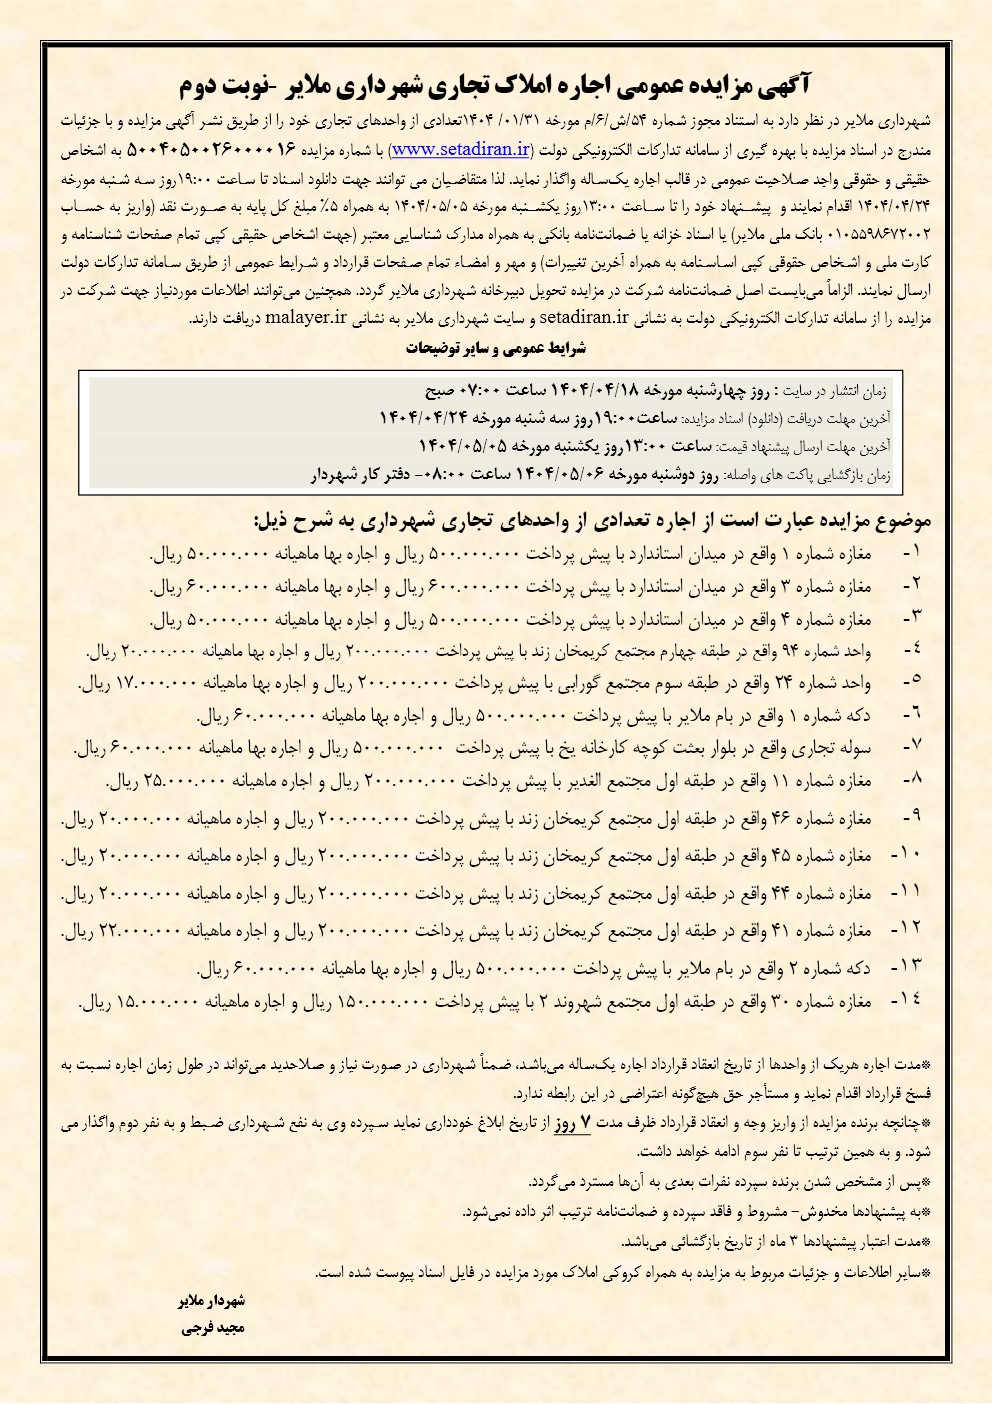 آگهی مزایده عمومی اجاره املاک تجاری شهرداری ملایر -نوبت دوم
شهرداری ملایر در نظر دارد به استناد مجوز شماره ۵۴/ش/۶/م مورخه ۰۱/۳۱/ ۱۴۰۴تعدادی از واحدهای تجاری خود را از طریق نشر آگهی مزایده و با جزئیات
مندرج در اسناد مزایده با بهره گیری از سامانه تدارکات الکترونیکی دولت (www.setadiran.ir) با شماره مزایده ۵۰۰۴۰۵۰۰۲۶۰۰۰۰۱۶ به اشخاص
حقیقی و حقوقی واجد صلاحیت عمومی در قالب اجاره یک‌ساله واگذار نماید. لذا متقاضیان می توانند جهت دانلود اسناد تا ساعت ۱۹:۰۰روز سه شنبه مورخه
۱۴۰۴/۰۴/۲۴ اقدام نمایند و پیشنهاد خود را تا ساعت ۱۳:۰۰روز یکشنبه مورخه ۱۴۰۴/۰۵/۰۵ به همراه ۵٪ مبلغ کل پایه به صورت نقد (واریز به حساب
۰۱۰۵۵۹۸۶۷۲۰۰۲ بانک ملی ملایر) یا اسناد خزانه یا ضمانت‌نامه بانکی به همراه مدارک شناسایی معتبر (جهت اشخاص حقیقی کپی تمام صفحات شناسنامه و
کارت ملی و اشخاص حقوقی کپی اساسنامه به همراه آخرین تغییرات) و مهر و امضاء تمام صفحات قرارداد و شرایط عمومی از طریق سامانه تدارکات دولت
ارسال نمایند. الزاماً می‌بایست اصل ضمانت‌نامه شرکت در مزایده تحویل دبیرخانه شهرداری ملایر گردد. همچنین می‌توانند اطلاعات موردنیاز جهت شرکت در
مزایده را از سامانه تدارکات الکترونیکی دولت به نشانی setadiran.ir و سایت شهرداری ملایر به نشانی malayer.ir دریافت دارند.
شرایط عمومی و سایر توضیحات
زمان انتشار در سایت : روز چهارشنبه مورخه ۱۴۰۴/۰۴/۱۸ ساعت ۰۷:۰۰ صبح
آخرین مهلت دریافت (دانلود) اسناد مزایده: ساعت۱۹:۰۰روز سه شنبه مورخه ۱۴۰۴/۰۴/۲۴
آخرین مهلت ارسال پیشنهاد قیمت: ساعت ۱۳:۰۰روز یکشنبه مورخه ۱۴۰۴/۰۵/۰۵
زمان بازگشایی پاکت های واصله: روز دوشنبه مورخه ۱۴۰۴/۰۵/۰۶ ساعت ۰۸:۰۰- دفتر کار شهردار
موضوع مزایده عبارت است از اجاره تعدادی از واحدهای تجاری شهرداری به شرح ذیل:
۱- مغازه شماره ۱ واقع در میدان استاندارد با پیش پرداخت ۵۰۰.۰۰۰.۰۰۰ ریال و اجاره بها ماهیانه ۵۰.۰۰۰.۰۰۰ ریال.
۲- مغازه شماره ۳ واقع در میدان استاندارد با پیش پرداخت ۶۰۰.۰۰۰.۰۰۰ ریال و اجاره بها ماهیانه ۶۰.۰۰۰.۰۰۰ ریال.
۳- مغازه شماره ۴ واقع در میدان استاندارد با پیش پرداخت ۵۰۰.۰۰۰.۰۰۰ ریال و اجاره بها ماهیانه ۵۰.۰۰۰.۰۰۰ ریال.
٤- واحد شماره ۹۴ واقع در طبقه چهارم مجتمع کریمخان زند با پیش پرداخت ۲۰۰.۰۰۰.۰۰۰ ریال و اجاره بها ماهیانه ۲۰.۰۰۰.۰۰۰ ریال.
۵- واحد شماره ۲۴ واقع در طبقه سوم مجتمع گورابی با پیش پرداخت ۲۰۰.۰۰۰.۰۰۰ ریال و اجاره بها ماهیانه ۱۷.۰۰۰.۰۰۰ ریال.
٦- دکه شماره ۱ واقع در بام ملایر با پیش پرداخت ۵۰۰.۰۰۰.۰۰۰ ریال و اجاره بها ماهیانه ۶۰.۰۰۰.۰۰۰ ریال.
۷- سوله تجاری واقع در بلوار بعثت کوچه کارخانه یخ با پیش پرداخت ۵۰۰.۰۰۰.۰۰۰ ریال و اجاره بها ماهیانه ۶۰.۰۰۰.۰۰۰ ریال.
۸- مغازه شماره ۱۱ واقع در طبقه اول مجتمع الغدیر با پیش پرداخت ۲۰۰.۰۰۰.۰۰۰ ریال و اجاره ماهیانه ۲۵.۰۰۰.۰۰۰ ریال.
۹- مغازه شماره ۴۶ واقع در طبقه اول مجتمع کریمخان زند با پیش پرداخت ۲۰۰.۰۰۰.۰۰۰ ریال و اجاره ماهیانه ۲۰.۰۰۰.۰۰۰ ریال.
۱۰- مغازه شماره ۴۵ واقع در طبقه اول مجتمع کریمخان زند با پیش پرداخت ۲۰۰.۰۰۰.۰۰۰ ریال و اجاره ماهیانه ۲۰.۰۰۰.۰۰۰ ریال.
۱۱- مغازه شماره ۴۴ واقع در طبقه اول مجتمع کریمخان زند با پیش پرداخت ۲۰۰.۰۰۰.۰۰۰ ریال و اجاره ماهیانه ۲۰.۰۰۰.۰۰۰ ریال.
۱۲- مغازه شماره ۴۱ واقع در طبقه اول مجتمع کریمخان زند با پیش پرداخت ۲۰۰.۰۰۰.۰۰۰ ریال و اجاره ماهیانه ۲۲.۰۰۰.۰۰۰ ریال.
۱۳- دکه شماره ۲ واقع در بام ملایر با پیش پرداخت ۵۰۰.۰۰۰.۰۰۰ ریال و اجاره بها ماهیانه ۶۰.۰۰۰.۰۰۰ ریال.
۱٤- مغازه شماره ۳۰ واقع در طبقه اول مجتمع شهروند ۲ با پیش پرداخت ۱۵۰.۰۰۰.۰۰۰ ریال و اجاره ماهیانه ۱۵.۰۰۰.۰۰۰ ریال.
*مدت اجاره هریک از واحدها از تاریخ انعقاد قرارداد اجاره یک‌ساله می‌باشد، ضمناً شهرداری در صورت نیاز و صلاحدید می‌تواند در طول زمان اجاره نسبت به
فسخ قرارداد اقدام نماید و مستأجر حق هیچ‌گونه اعتراضی در این رابطه ندارد.
*چنانچه برنده مزایده از واریز وجه و انعقاد قرارداد ظرف مدت ۷ روز از تاریخ ابلاغ خودداری نماید سپرده وی به نفع شهرداری ضبط و به نفر دوم واگذار می
شود. و به همین ترتیب تا نفر سوم ادامه خواهد داشت.
*پس از مشخص شدن برنده سپرده نفرات بعدی به آن‌ها مسترد می‌گردد.
*به پیشنهادها مخدوش- مشروط و فاقد سپرده و ضمانت‌نامه ترتیب اثر داده نمی‌شود.
*مدت اعتبار پیشنهادها ۳ ماه از تاریخ بازگشائی می‌باشد.
*سایر اطلاعات و جزئیات مربوط به مزایده به همراه کروکی املاک مورد مزایده در فایل اسناد پیوست شده است.
شهردار ملایر
مجید فرجی